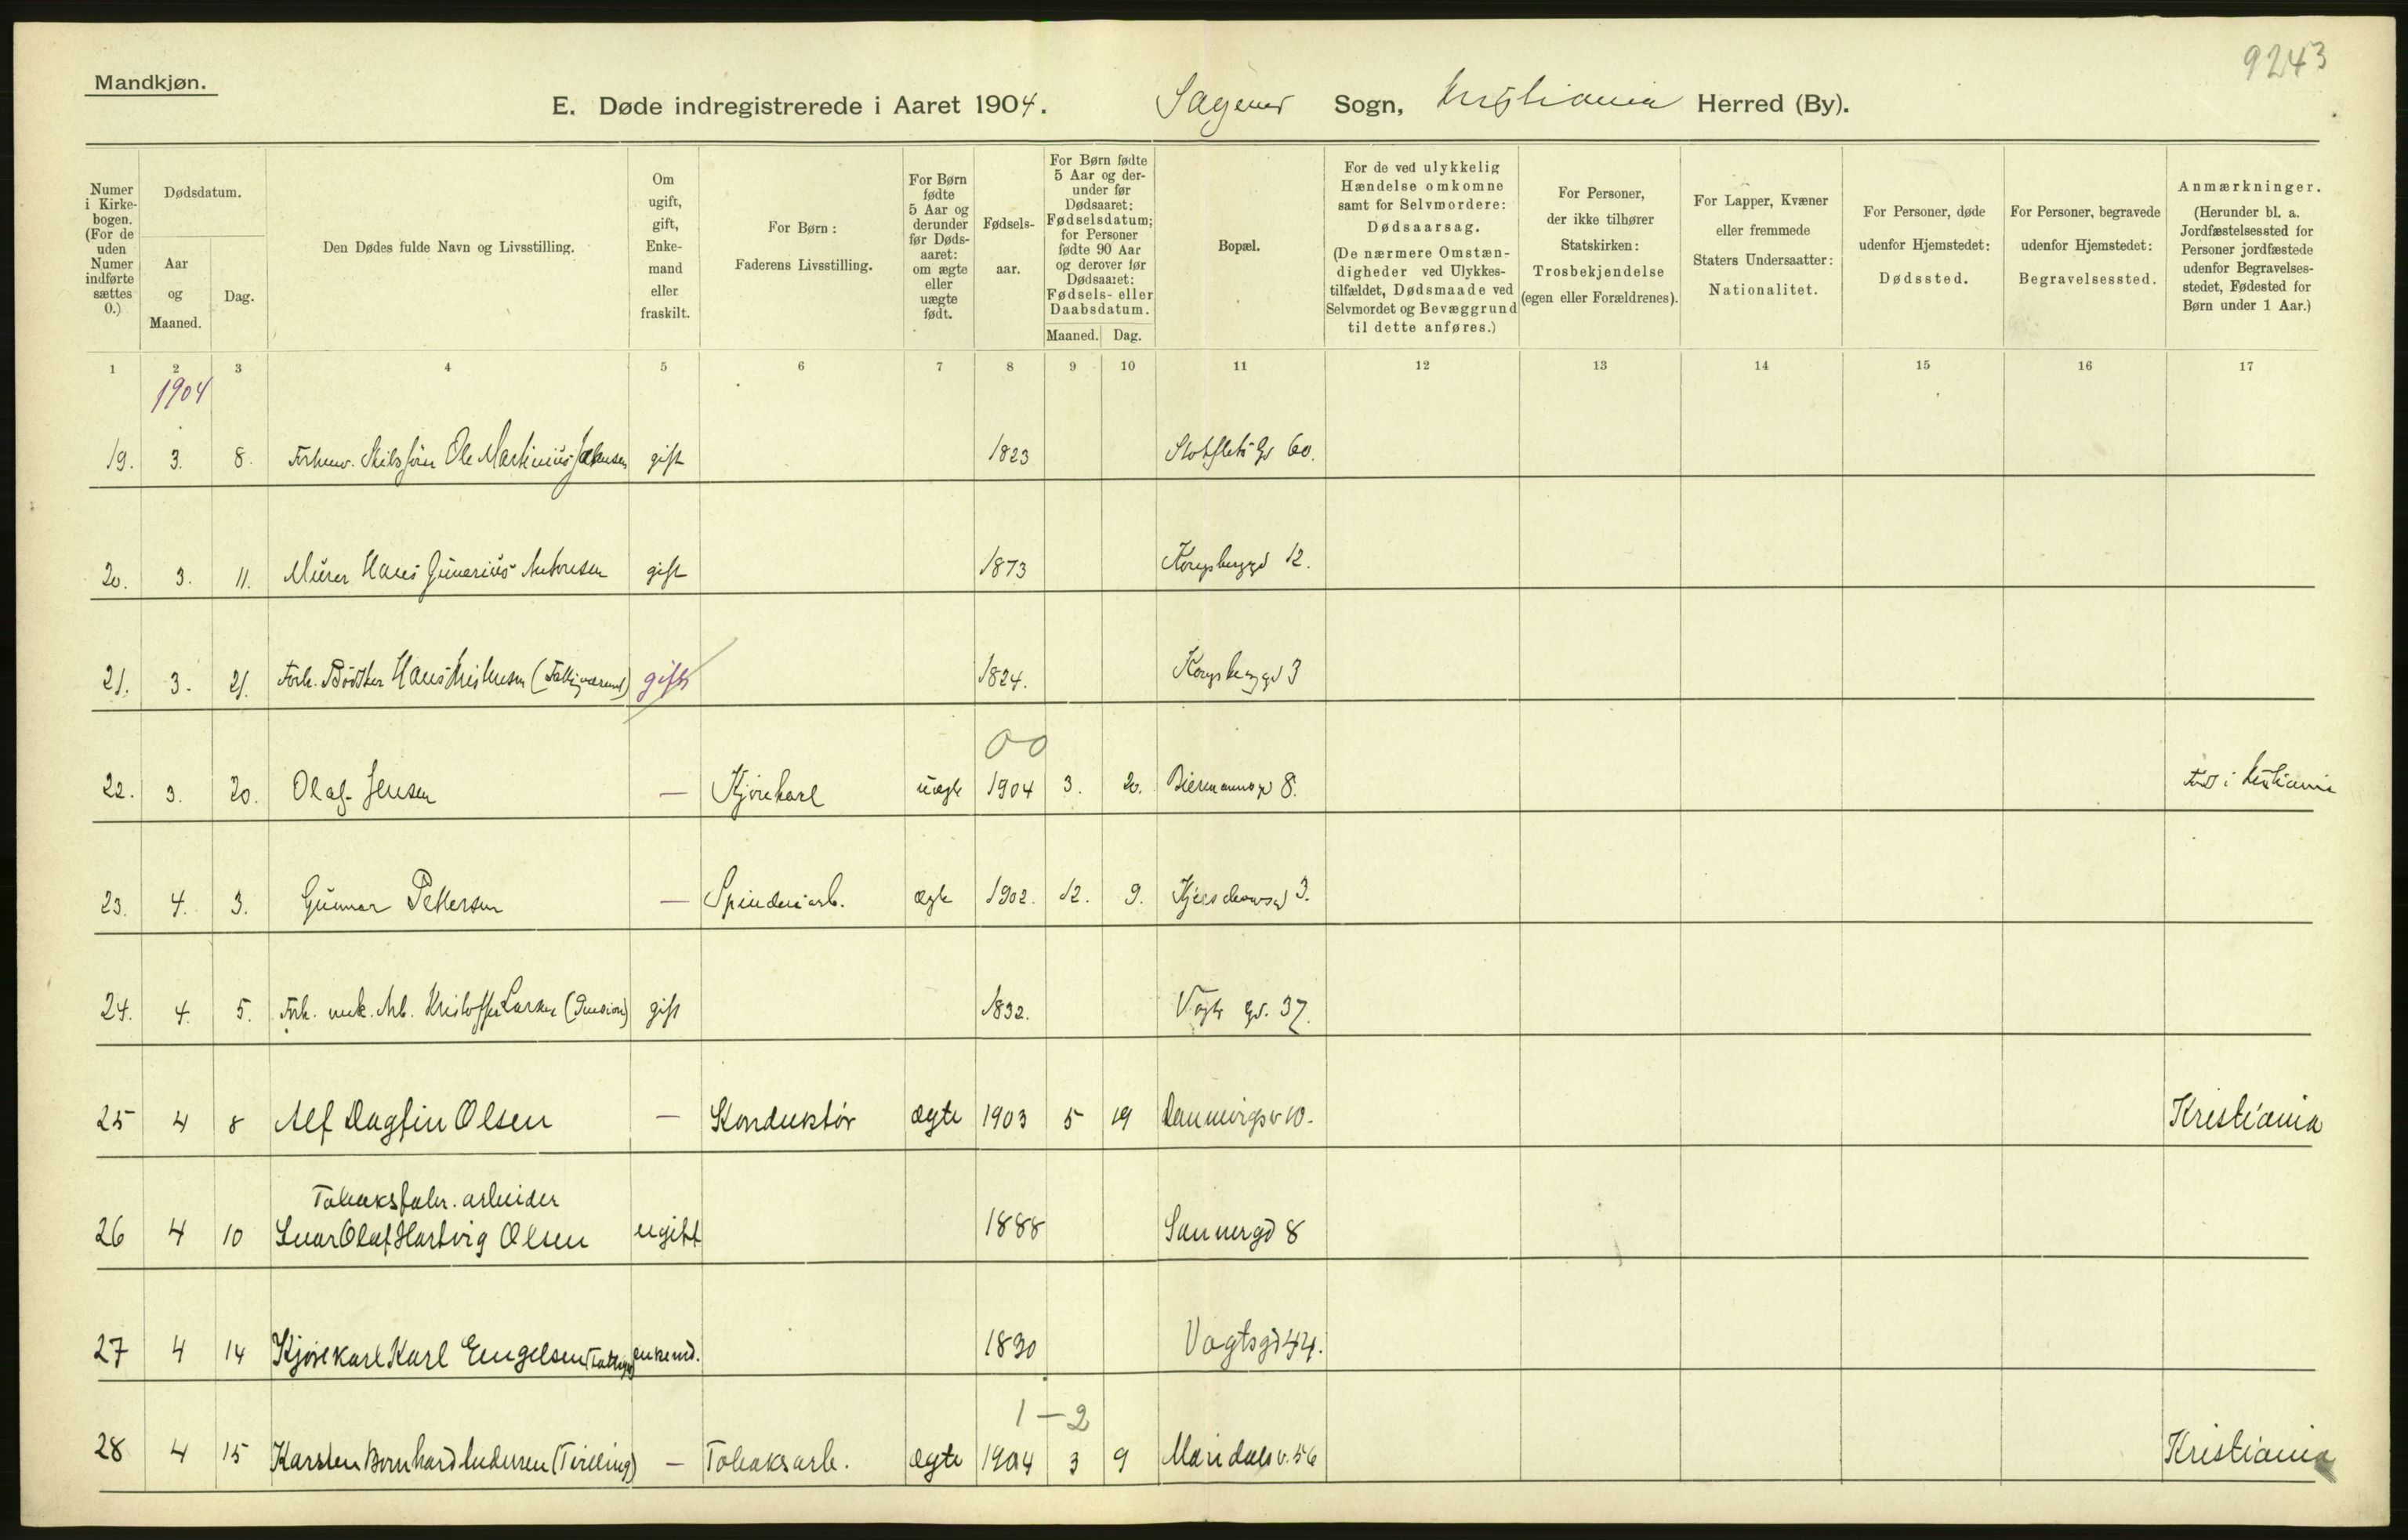 9243
Mandkjøn.
E. Døde indregistrerede i Aaret 1904. Sagenes Sogn, Kristiania Herred (By).
Numer i Kirkebogen. (For de uden Numer indførte sættes 0.)
Dødsdatum.
Aar og Maaned.
Dag.
Den Dødes fulde Navn og Livsstilling.
Om ugift, gift, Enkemand eller fraskilt.
For Børn: Faderens Livsstilling.
For Børn fødte 5 Aar og derunder før Dødsaaret: om ægte eller uægte født.
Fødselsaar.
For Børn fødte 5 Aar og derunder før Dødsaaret: Fødselsdatum; for Personer fødte 90 Aar og derover før Dødsaaret: Fødsels- eller Daabsdatum.
Maaned. Dag.
Bopæl.
For de ved ulykkelig Hændelse omkomne samt for Selvmordere: Dødsaarsag. (De nærmere Omstændigheder ved Ulykkestilfældet, Dødsmaade ved Selvmordet og Bevæggrund til dette anføres.)
For Personer, der ikke tilhører Statskirken: Trosbekjendelse (egen eller Forældrenes).
For Lapper, Kvæner eller fremmede Staters Undersaatter: Nationalitet.
For Personer, døde udenfor Hjemstedet: Dødssted.
For Personer, begravede udenfor Hjemstedet: Begravelsessted.
Anmærkninger. (Herunder bl. a. Jordfæstelsessted for Personer jordfæstede udenfor Begravelsesstedet, Fødested for Børn under 1 Aar.)
1 2 3 4 5 6 7 8 9 10 11 12 13 14 15 16 17
1904
19. 3. 8. Ole Martinius gift 1823 60.
20. 3. 11. Murer Hans Gunerius Antonsen gift 1873 12.
21. 3. 21. Forh. Bödker Hans Kristensen gift 1824. 3
00
22. 3. 20. Olaf Jensen — Kjörekarl uægte 1904 3. 20. Biermannsgd 8. Född i Kristiania
23. 4. 3. Gunnar Pettersen — Spinderiarb. ægte 1902. 12. 9. Kjerschowsgd 3.
24. 4. 5. Forh. mek. Arb. Kristoffer Larsen (Pension) gift 1832. Vogts gd. 37.
25 4 8 Alf Dagfin Olsen — Konduktör ægte 1903 5 19 Dannevigsv 10. Kristiania
Tobaksfabr. arbeider
26 4 10 Olaf Hartvig Olsen ugift 1888 Sannergd 8
27 4 14 Kjörekarl Karl Engelsen enkemd. 1830 Vogtsgd 44.
1 – 2
28 4 15 Karsten Bernhard Andersen (Tvilling) — Tobaksarb. ægte 1904 3 9 Maridalsv. 56 Kristiania